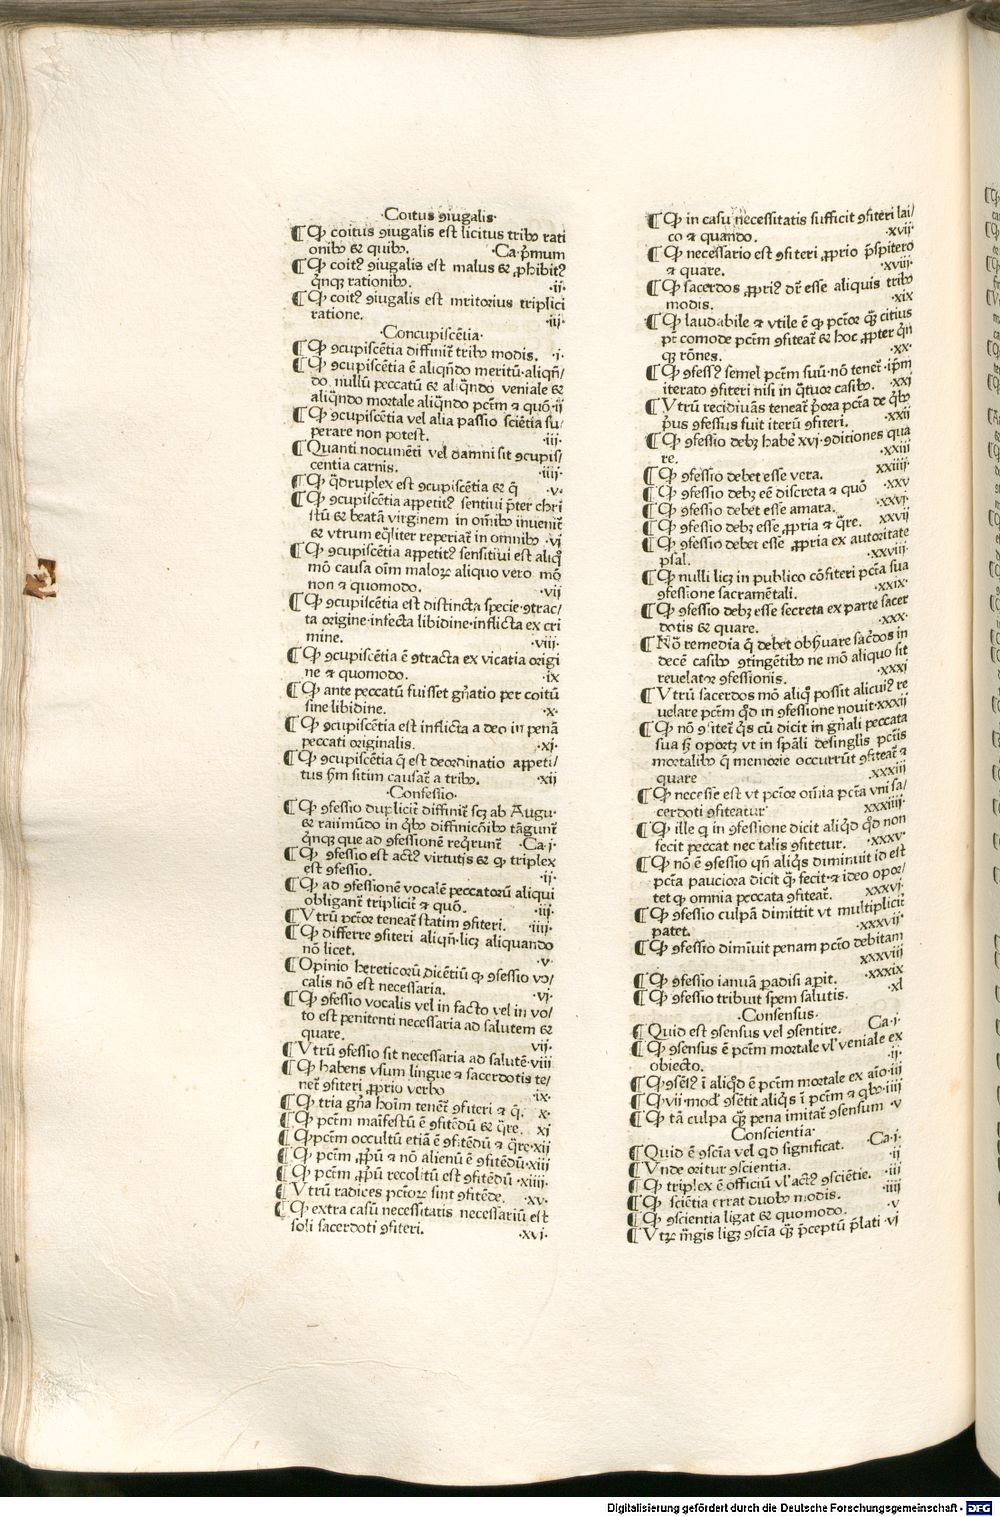 ·Coitus ꝯiugalis·
¶ Ꝙ coitus ꝯiugalis est licitus tribꝰ rati
onibꝰ & quibꝰ. ·Ca·p̄mum
¶ Ꝙ coitꝰ ꝯiugalis est malus & ꝓhibitꝰ
q̇nqꝫ rationibꝰ. ·ij·
¶ Ꝙ coitꝰ ꝯiugalis est mritorius triplici
ratione. ·iij·
·Concupiscētia·
¶ Ꝙ ꝯcupiscētia diffinit᷑ tribꝰ modis. ·i·
¶ Ꝙ ꝯcupiscētia ē aliqn̄do meritū·aliqn̄/
do nullū peccatū & aliqn̄do veniale &
aliqn̄do mortale aliqn̄do pctm̄ ⁊ quō·ij
¶ Ꝙ ꝯcupiscētia vel alia passio sciētia su/
perare non potest. ·iij·
¶ Quanti nocumēti vel damni sit ꝯcupis/
centia carnis. ·iiij·
¶ Ꝙ q̄druplex est ꝯcupiscētia & q̄ ·v·
¶ Ꝙ ꝯcupiscētia appetitꝰ sentiui p̄ter chri
stū & beatā virginem in oīnibꝰ inuenit᷑
& vtrum eq̄liter reperiat᷑ in omnibꝰ ·vj
¶ Ꝙ ꝯcupiscētia appetitꝰ sensitiui est aliq̊
mō causa oīm maloꝝ aliquo vero mō
non ⁊ quomodo. ·vij
¶ Ꝙ ꝯcupiscētia est distincta specie·ꝯtrac/
ta origine·infecta libidine·inflicta ex cri
mine. ·viij·
¶ Ꝙ ꝯcupiscētia ē ꝯtracta ex vicatia origi
ne & quomodo. ·ix
¶ Ꝙ ante peccatū fuisset gn̄atio per coitū
sine libidine. ·x·
¶ Ꝙ ꝯcupiscētia est inflicta a deo in penā
peccati originalis. ·xj·
¶ Ꝙ ꝯcupiscētia q̄ est deordinatio appeti/
tus ẜm sitim causat᷑ a tribꝰ. ·xij
·Confessio·
¶ Ꝙ ꝯfessio duplicit᷑ diffinit᷑ scꝫ ab Augu·
& raiimūdo in q̇bꝰ diffinicōibꝰ tāgunt᷑
q̇nqꝫ que ad ꝯfessionē reqrunt᷑ ·Ca·j·
¶ Ꝙ ꝯfessio est actꝰ virtutis & ꝙ triplex
est ꝯfessio. ·ij·
¶ Ꝙ ad ꝯfessionē vocalē peccatorū aliqui
obligant᷑ triplicit᷑ & quō. ·iij·
¶ Vtrū pctōr teneat᷑ statim ꝯfiteri. ·iiij·
¶ Ꝙ differre ꝯfiteri aliqn̄·licꝫ aliquando
nō licet. ·v·
¶ Opinio hereticorū dicētiū ꝙ ꝯfessio vo/
calis nō est necessaria. ·vj·
¶ Ꝙ ꝯfessio vocalis vel in facto vel in vo/
to est penitenti necessaria ad salutem &
quare. vij·
¶ Vtrū ꝯfessio sit necessaria ad salutē·viij
¶ Ꝙ habens vsum lingue ⁊ sacerdotis te/
net᷑ ꝯfiteri ꝓprio verbo ·ix·
¶ Ꝙ tria gn̄a hoīm tenēt᷑ ꝯfiteri & q̄. x·
¶ Ꝙ pctm̄ maīfestū ē ꝯfitēdū & q̄re. xj
¶ Ꝙ pctm̄ occultū etiā ē ꝯfitēdū & q̄re·xij
¶ Ꝙ pctm̄ ꝓpū & nō alienū ē ꝯfitēdū·xiij
¶ Ꝙ pctm̄ ꝓpū recolitū est ꝯfitēdū ·xiiij·
¶ Vtrū radices pctōꝝ sint ꝯfitēde. ·xv·
¶ Ꝙ extra casū necessitatis necessariū est
soli sacerdoti ꝯfiteri. ·xvj·
¶ Ꝙ in casu necessitatis sufficit ꝯfiteri lai/
co ⁊ quando. ·xvij·
¶ Ꝙ necessario est ꝯfiteri ꝓprio p̄spitero
& quare. ·xviij·
¶ Ꝙ sacerdos ꝓpriꝰ dr̄ esse aliquis tribꝰ
modis. ·xix
¶ Ꝙ laudabile ⁊ vtile ē ꝙ pctōr q̄ꝫ citius
pt̄ comode pctm̄ ꝯfiteat᷑ & hoc ꝓpter q̇n
qꝫ rōnes. ·xx·
¶ Ꝙ ꝯfessꝰ semel pctm̄ suū·nō tenet᷑·ip̄m
iterato ꝯfiteri nisi in q̄tuor casibꝰ. ·xxj
¶ Vtrū recidiuās teneat᷑ p̄ora pctā de q̇bꝰ
p̄us ꝯfessus fuit iterū ꝯfiteri. ·xxij
¶ Ꝙ ꝯfessio debꝫ habē xvj·ꝯditiones qua
re. ·xxiij
¶ Ꝙ ꝯfessio debet esse vera. xxiiij·
¶ Ꝙ ꝯfessio debꝫ eē discreta ⁊ quō ·xxv
¶ Ꝙ ꝯfessio debet esse amara. ·xxvj·
¶ Ꝙ ꝯfessio debꝫ esse ꝓpria ⁊ q̄re. xxvij
¶ Ꝙ ꝯfessio debet esse ꝓpria ex autoritate
psal. ·xxviij·
¶ Ꝙ nulli licꝫ in publico cōfiteri pctā sua
ꝯfessione sacramētali. ·xxix·
¶ Ꝙ ꝯfessio debꝫ esse secreta ex parte sacer
dotis & quare. ·xxx·
¶ Nō remedia q̄ debet obẜuare sac̄dos in
decē casibꝰ ꝯtingētibꝰ ne mō aliquo sit
reuelator ꝯfessionis. ·xxxj
¶ Vtrū sacerdos mō aliq̊ possit alicuiꝰ re
uelare pctm̄ qḋ in ꝯfessione nouit·xxxij
¶ Ꝙ nō ꝯfitet᷑ q̇s cū dicit in gn̄ali peccata
sua ẜ oportꝫ vt in sp̄ali desinglis pctīs
mortalibꝰ q̄ memorie occurrūt ꝯfiteat᷑ ⁊
quare ·xxxiij
¶ Ꝙ necesse est vt pctōr omīa pctā vni sa/
cerdoti ꝯfiteatur xxxiiij·
¶ Ꝙ ille q̄ in ꝯfessione dicit aliqḋ qḋ non
fecit peccat nec talis ꝯfitetur. ·xxxv·
¶ Ꝙ nō ē ꝯfessio qn̄ aliq̇s diminuit id est
pctā pauciora dicit q̄ꝫ fecit·⁊ ideo opor/
tet ꝙ omnia peccata ꝯfiteat᷑. xxxvj·
¶ Ꝙ ꝯfessio culpā dimittit vt multiplicit᷑
patet. ·xxxvij·
¶ Ꝙ ꝯfessio dimīuit penam pctō debitam
xxxviij
¶ Ꝙ ꝯfessio ianuā padisi apit. ·xxxix
¶ Ꝙ ꝯfessio tribuit spem salutis. ·xl
·Consensus·
¶ Quid est ꝯsensus vel ꝯsentire. Ca·i·
¶ Ꝙ ꝯsensus ē pctm̄ mortale vl' veniale ex
obiecto. ·ij·
¶ Ꝙ ꝯsēsꝰ ī aliqḋ ē pctm̄ mortale ex aīo·iij
¶ Ꝙ vij·mod' ꝯsētit aliq̇s ī pctm̄ ⁊ q̇bꝰ·iiij
¶ Ꝙ tā culpa q̄ꝫ pena imitat᷑ ꝯsensum ·v
Conscientia·
¶ Quid ē ꝯscīa vel qḋ significat. ·Ca·j·
¶ Vnde oritur ꝯscientia. ·ij
¶ Ꝙ triplex ē officiū vl' actꝰ ꝯsciētie. ·iij
¶ Ꝙ sciētia errat duobꝰ modis. ·iiij
¶ Ꝙ ꝯscientia ligat & quomodo. ·v
¶ Vtꝝ m̄gis ligꝫ ꝯscīa q̄ꝫ p̄ceptū p̄lati ·vj
Digitalisierung gefördert durch die Deutsche Forschungsgemeinschaft - DFG